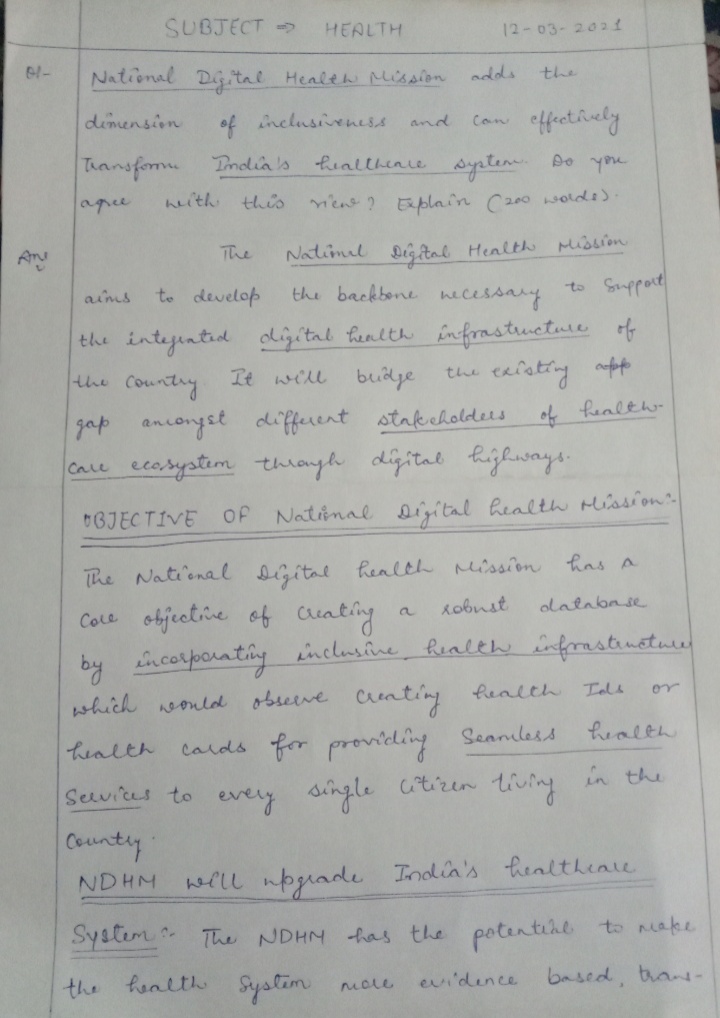 SUBJECT ⇒ HEALTH 12-03-2021
Q1- National Digital Health Mission adds the
dimension of inclusiveness and can effectively
Transform India's healthcare system. Do you
agree with this view? Explain (200 words).
Ans The National Digital Health Mission
aims to develop the backbone necessary to Support
the integrated digital health infrastructure of
the Country It will bridge the existing
gap amongst different stakeholders of health-
care ecosystem through digital highways.
OBJECTIVE OF National Digital health Mission:-
The National Digital health Mission has a
Core objective of Creating a robust database
by incorporating inclusive health infrastructure
which would observe Creating health Ids or
health cards for providing Seamless health
Services to every single Citizen living in the
Country.
NDHM will upgrade India's healthcare
System:- The NDHM has the potential to make
the health System more evidence based, trans-